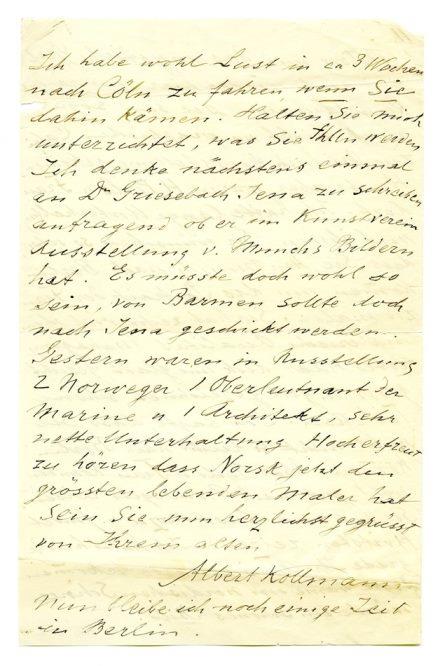 Ich habe wohl Lust in ca 3 Wochen
nach Cöln zu fahren, wenn Sie
dahin kämen. Halten Sie mich
unterrichtet, was Sie thun werden
Ich denke nächstens einmal
an Dr Griesebach Jena zu schreiben
anfragend ob er im Kunstverein
Ausstellung v. Munchs Bildern
hat. Es müsste doch wohl so
sein, von Barmen sollte doch
nach Jena geschickt werden.
Gestern waren in Ausstellung
2 Norweger 1 Oberleutnant der
Marine u 1 Architekt, sehr
nette Unterhaltung Hocherfreut
zu hören dass Norsk jetzt den
grössten lebenden Maler hat
Sein Sie nun herzlichst gegrüsst
von Ihrem alten
Albert Kollmann
Nun bleibe ich noch einige Zeit
in Berlin.